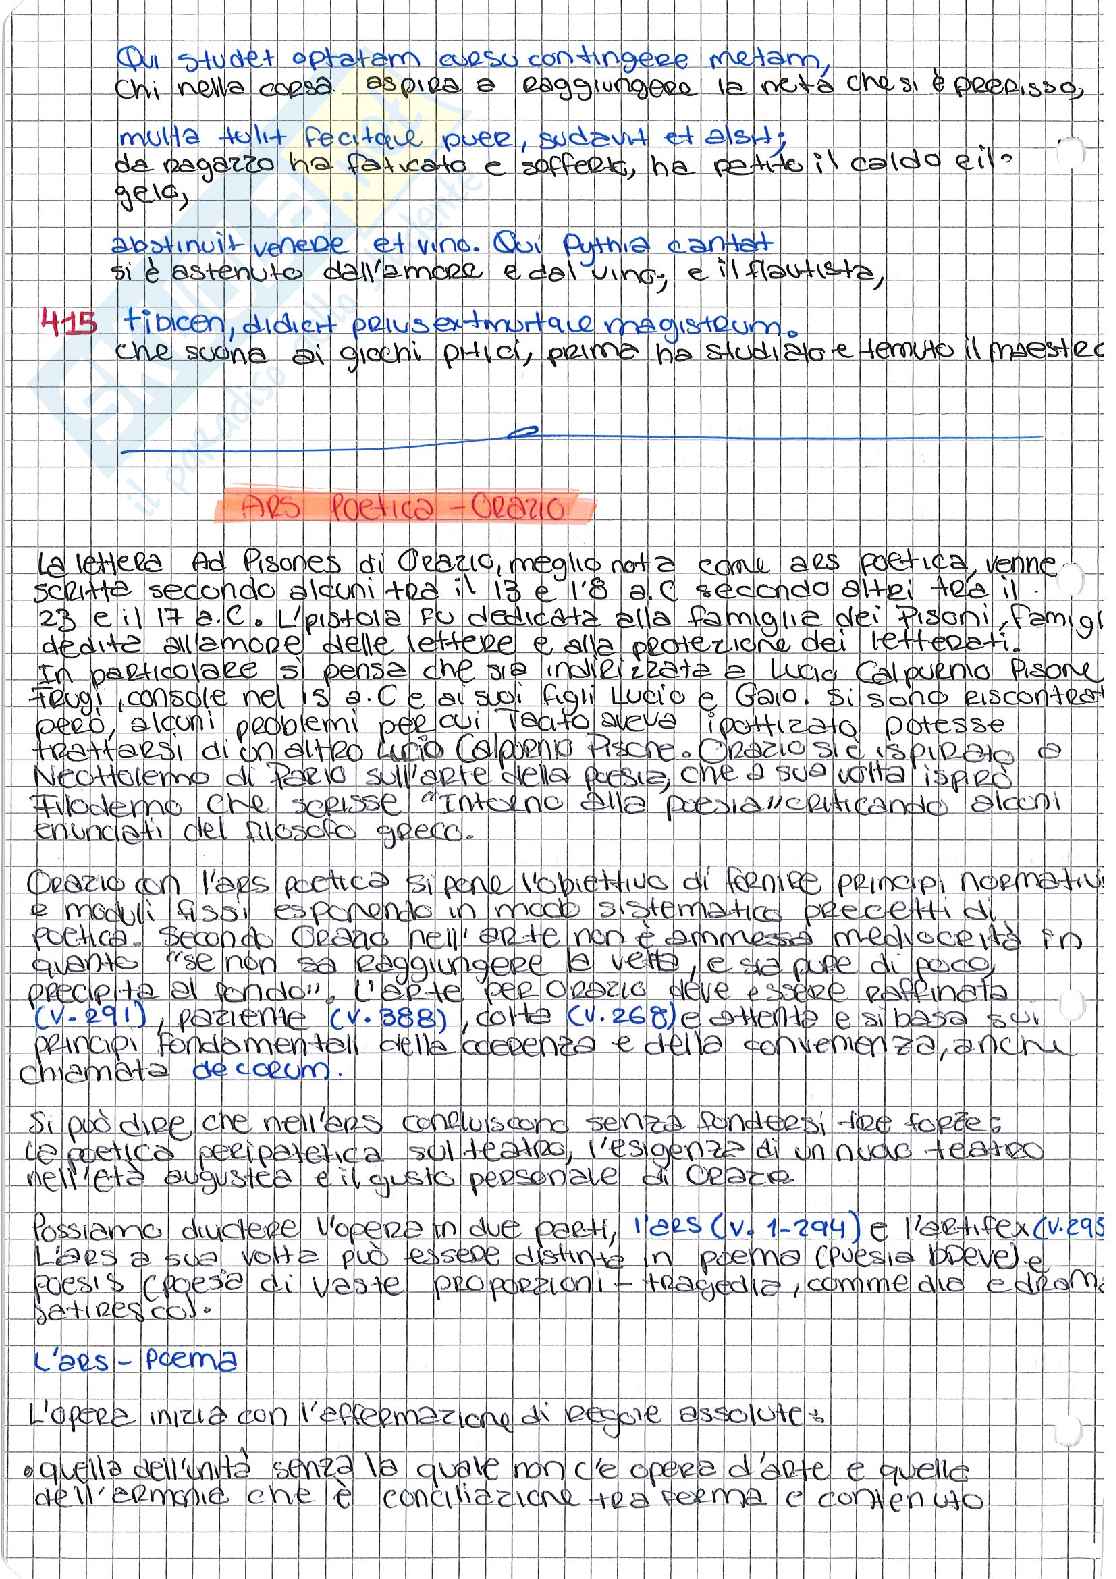 Qui studet optatam cursu contingere metam,
Chi nella corsa aspira a raggiungere la metà che si è prefisso,
multa tulit fecitque puer, sudavit et alsit;
da ragazzo ha faticato e sofferto, ha patito il caldo e il
gelo,
abstinuit venere et vino. Qui Pythia cantat
si è astenuto dall'amore e dal vino; e il flautista,
415 tibicen, didicit prius extimuitque magistrum.
che suona ai giochi pitici, prima ha studiato e temuto il maestro
ARS POETICA - ORAZIO
La lettera Ad Pisones di Orazio, meglio nota come ars poetica, venne
scritta secondo alcuni tra il 13 e l'8 a.C secondo altri tra il
23 e il 17 a.C. L'pistola fu dedicata alla famiglia dei Pisoni, famigl
dedita all'amore delle lettere e alla protezione dei letterati.
In particolare si pensa che sia indirizzata a Lucio Calpurnio Pisone
Frugi, console nel 15 a.C e ai suoi figli Lucio e Gaio. Si sono riscontrat
però, alcuni problemi per cui Tacito aveva ipotizzato potesse
trattarsi di un altro Lucio Calpurnio Pisone. Orazio si è ispirato a
Neottolemo di Pario sull'arte della poesia, che a sua volta ispirò
Filodemo che scrisse "Intorno alla poesia" criticando alcuni
enunciati del filosofo greco.
Orazio con l'ars poetica si pone l'obiettivo di fornire principi normativi
e moduli fissi esponendo in modo sistematico precetti di
poetica. Secondo Orazio nell'arte non è ammessa mediocrità in
quanto "se non sa raggiungere la vetta, e sia pure di poco,
precipita al fondo". L'arte per Orazio deve essere raffinata
(v. 291), paziente (v. 388), colta (v. 268) e attenta e si basa sui
principi fondamentali della coerenza e della convenienza, anche
chiamata decorum.
Si può dire che nell'ars confluiscono senza fondersi tre forze:
la poetica peripatetica sul teatro, l'esigenza di un nuovo teatro
nell'età augustea e il gusto personale di Orazio
Possiamo dividere l'opera in due parti, l'ars (v. 1-294) e l'artifex (v. 295
L'ars a sua volta può essere distinta in poema (poesia breve) e
poesis (poesia di vaste proporzioni - tragedia, commedia e dramma
satiresco).
L'ars - Poema
L'opera inizia con l'affermazione di regole assolute:
• quella dell'unità senza la quale non c'è opera d'arte e quella
dell'armonia che è conciliazione tra forma e contenuto